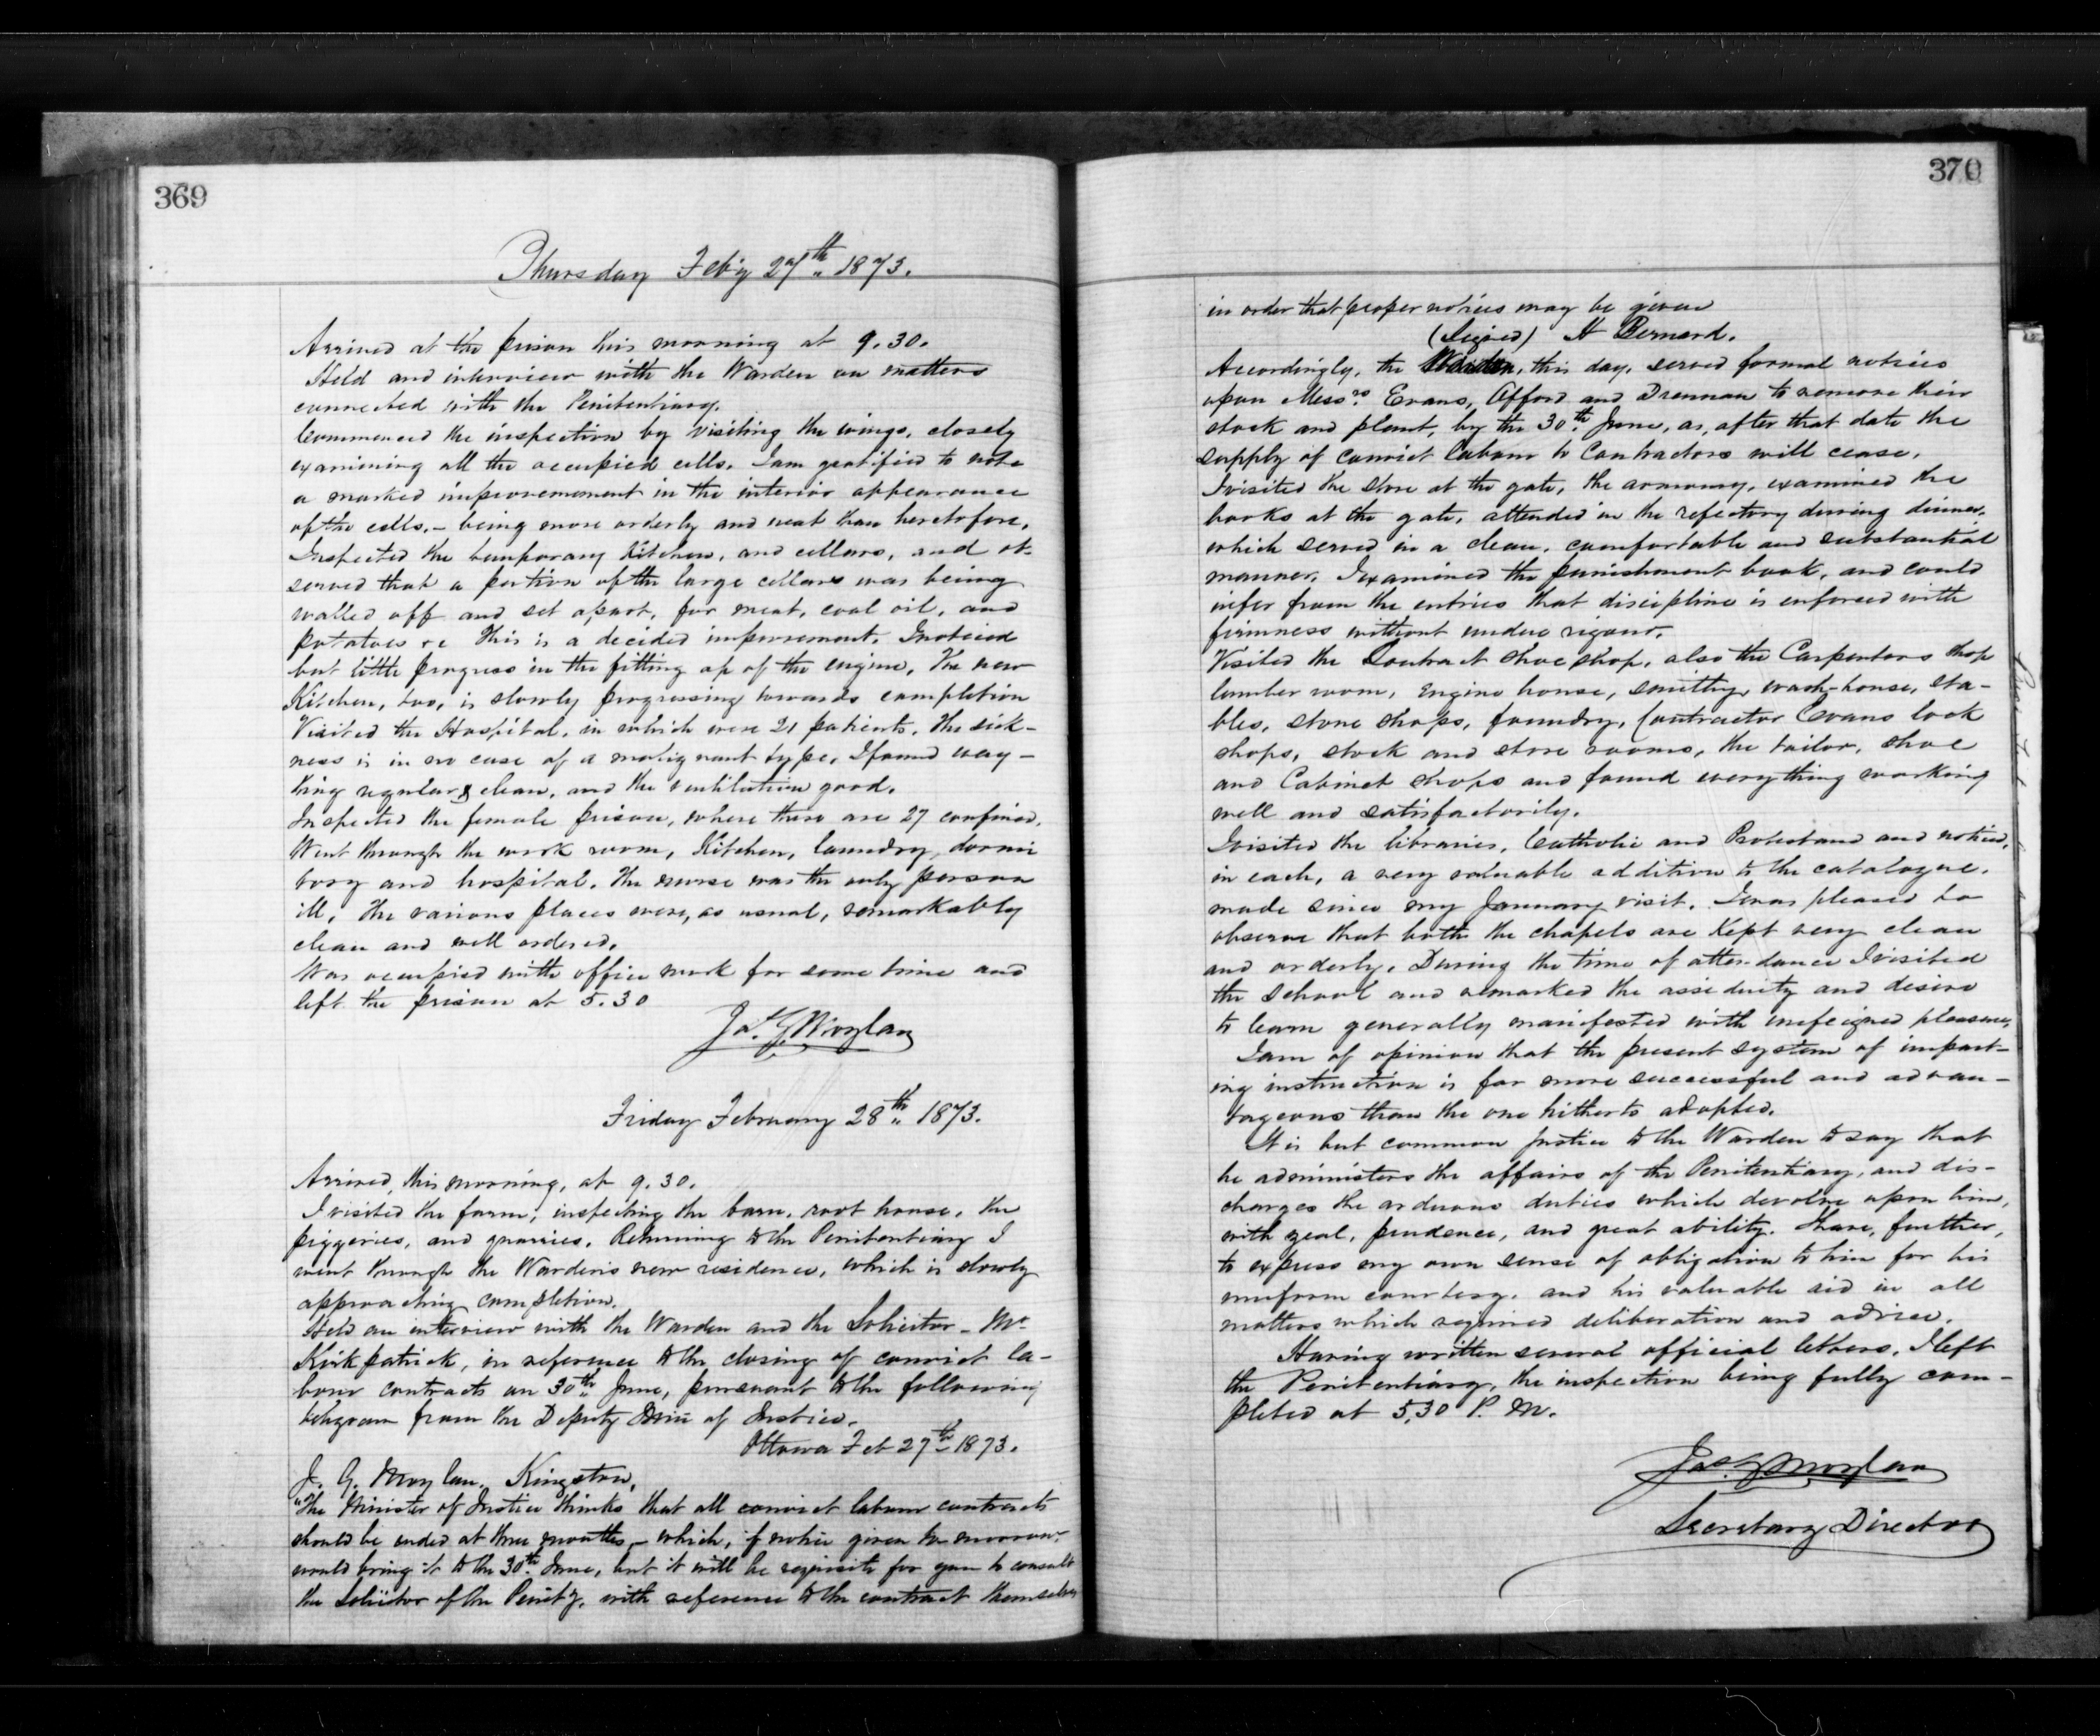 369
Thursday Feby 27th 1873.
Arrived at the prison this morning at 9.30.
Held and interview with the Warden on matters
connected with the Penitentiary.
Commenced the inspection by visiting the wings, closely
examining all the occupied cells. I am gratified to note
a marked improvemement in the interior appearance
of the cells, - being more orderly and neat than heretofore.
Inspected the temporary Kitchen, and cellars, and ob-
served that a portion of the large cellars was being
walled off and set apart, for meat, coal oil, and
potatoes &c This is a decided improvement. I noticed
but little progress in the fitting up of the engine. The new
Kitchen, too, is slowly progressing towards completion
Visited the Hospital, in which were 21 patients. The sick-
ness is in no case of a malignant type. I found every-
thing regular & clean, and the ventilation good.
Inspected the female prison, where there are 27 confined.
Went through the work room, Kitchen, laundry, dormi
tory and hospital. The nurse was the only person
ill. The various places were, as usual, remarkably
clean and well ordered.
Was occupied with office work for some time and
left the prison at 5.30
Jas. G. Moylan
Friday February 28th 1873.
Arrived, this morning, at 9.30.
I visited the farm, inspecting the barn, root house, the
piggeries, and quarries. Returning to the Penitentiary I
went through the Warden's new residence, which is slowly
approaching completion.
Held an interview with the Warden and the Solicitor - Mr
Kirkpatrick, in reference to the closing of convict la-
bour contracts on 30th June, pursuant to the following
telegram from the Deputy Minr of Justice.
Ottawa Feb 27th 1873.
J. G. Moylan, Kingston,
"The Minister of Justice thinks that all convict labour contracts
should be ended at three months - which, if notice given to morrow
would bring it to the 30th June, but it will be requisite for you to consult
the Solicitor of the Penity. with reference to the contract themselves
370
in order that proper notices may be given
(Signed) H Bernard.
Accordingly, the Warden, this day, served formal notices
upon Messrs Evans, Offord and Drennan to remove their
stock and plant, by the 30th June, as, after that date the
supply of convict labour to Contractors will cease.
I visited the store at the gate, the armoury, examined the
books at the gate, attended in the refectory during dinner,
which served in a clean, comfortable and substantial
manner. I examined the punishment book, and could
infer from the entries that discipline is enforced with
firmness without undue rigour.
Visited the Contract shoe shop, also the Carpenters shop
lumber room, engine house, smithy, wash-house, sta-
bles, stone shops, foundry, Contractor Evans lock
shops, stock and store rooms, the tailor, shoe
and Cabinet shops and found everything working
well and satisfactorily.
I visited the libraries, Catholic and Protestand and noticed,
in each, a very valuable addition to the catalogue,
made since my January visit. I was pleased to
observe that both the chapels are kept very clean
and orderly. During the time of attendance I visited
the school and remarked the assiduity and desire
to learn generally manifested with unfeigned pleasure,
I am of opinion that the present system of impart-
ing instruction is far more successful and advan-
tageous than the one hitherto adopted.
It is but common justice to the Warden to say that
he administers the affairs of the Penitentiary, and dis-
charges the arduous duties which devolve upon him,
with zeal, prudence, and great ability. I have, further,
to express my own sense of obligation to him for his
uniform courtesy, and his valuable aid in all
matters which required deliberation and advice.
Having written several official letters, I left
the Penitentiary, the inspection being fully com-
pleted at 5.30 P. M.
Jas. G Moylan
Secretary Director